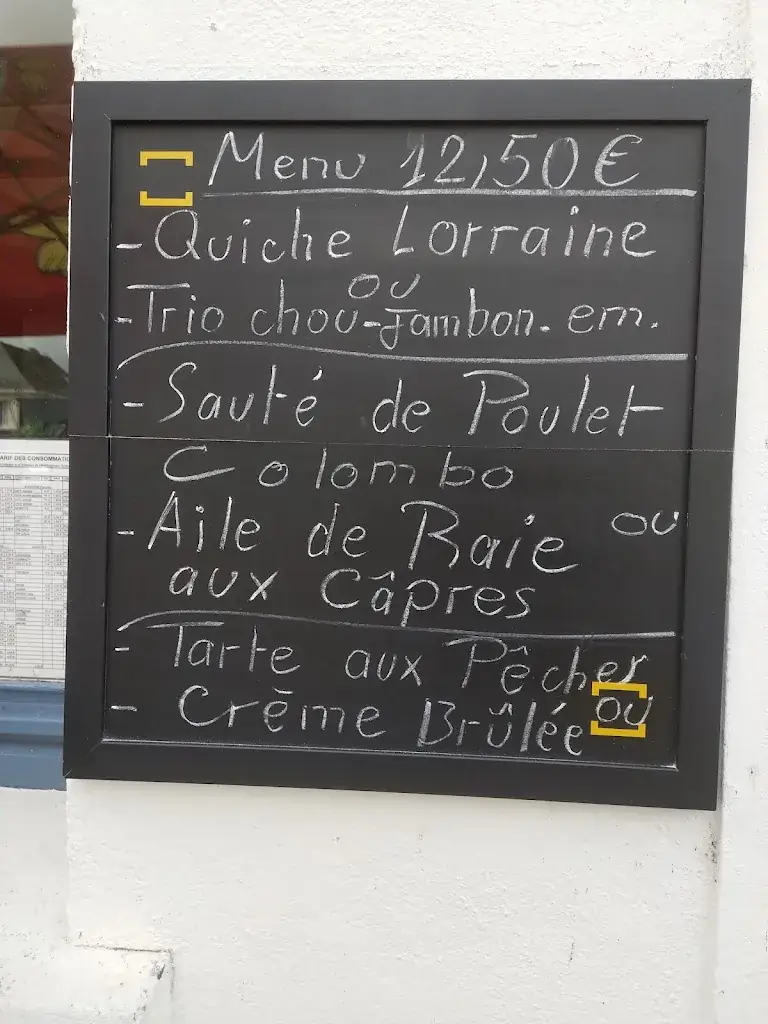 Menu 12,50€
- Quiche Lorraine
ou
- Trio chou-Jambon. em.
- Sauté de Poulet
Colombo
ou
- Aile de Raie
aux Câpres
- Tarte aux Pêches
ou
- Crème Brûlée
TARIF DES CONSOMMATIO